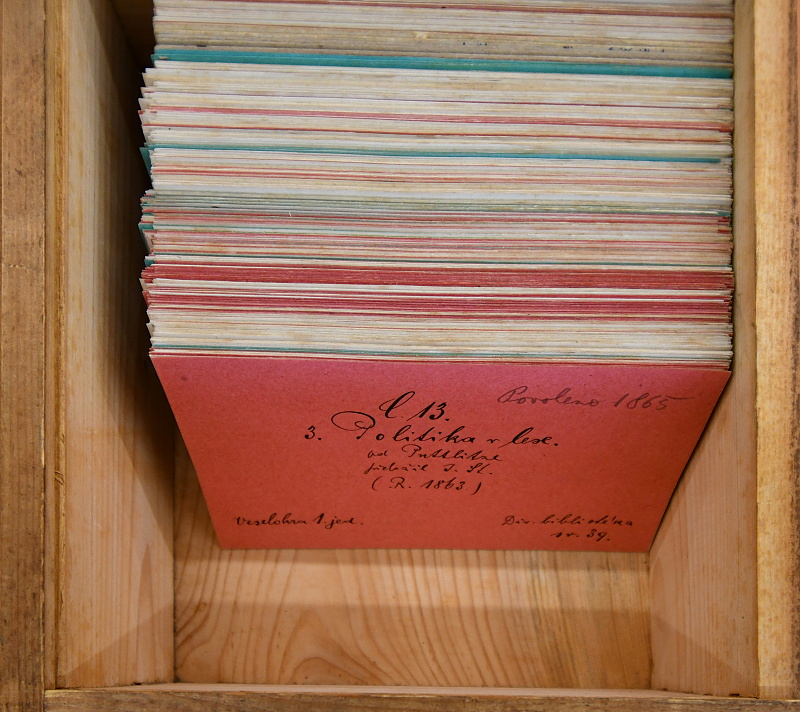 Povoleno 1865
C 13.
3. Politika v lese.
od Puttlitze
přeložil J. St.
(R. 1863)
Veselohra 1 jed.
Div. bibliotéka
sv. 39.